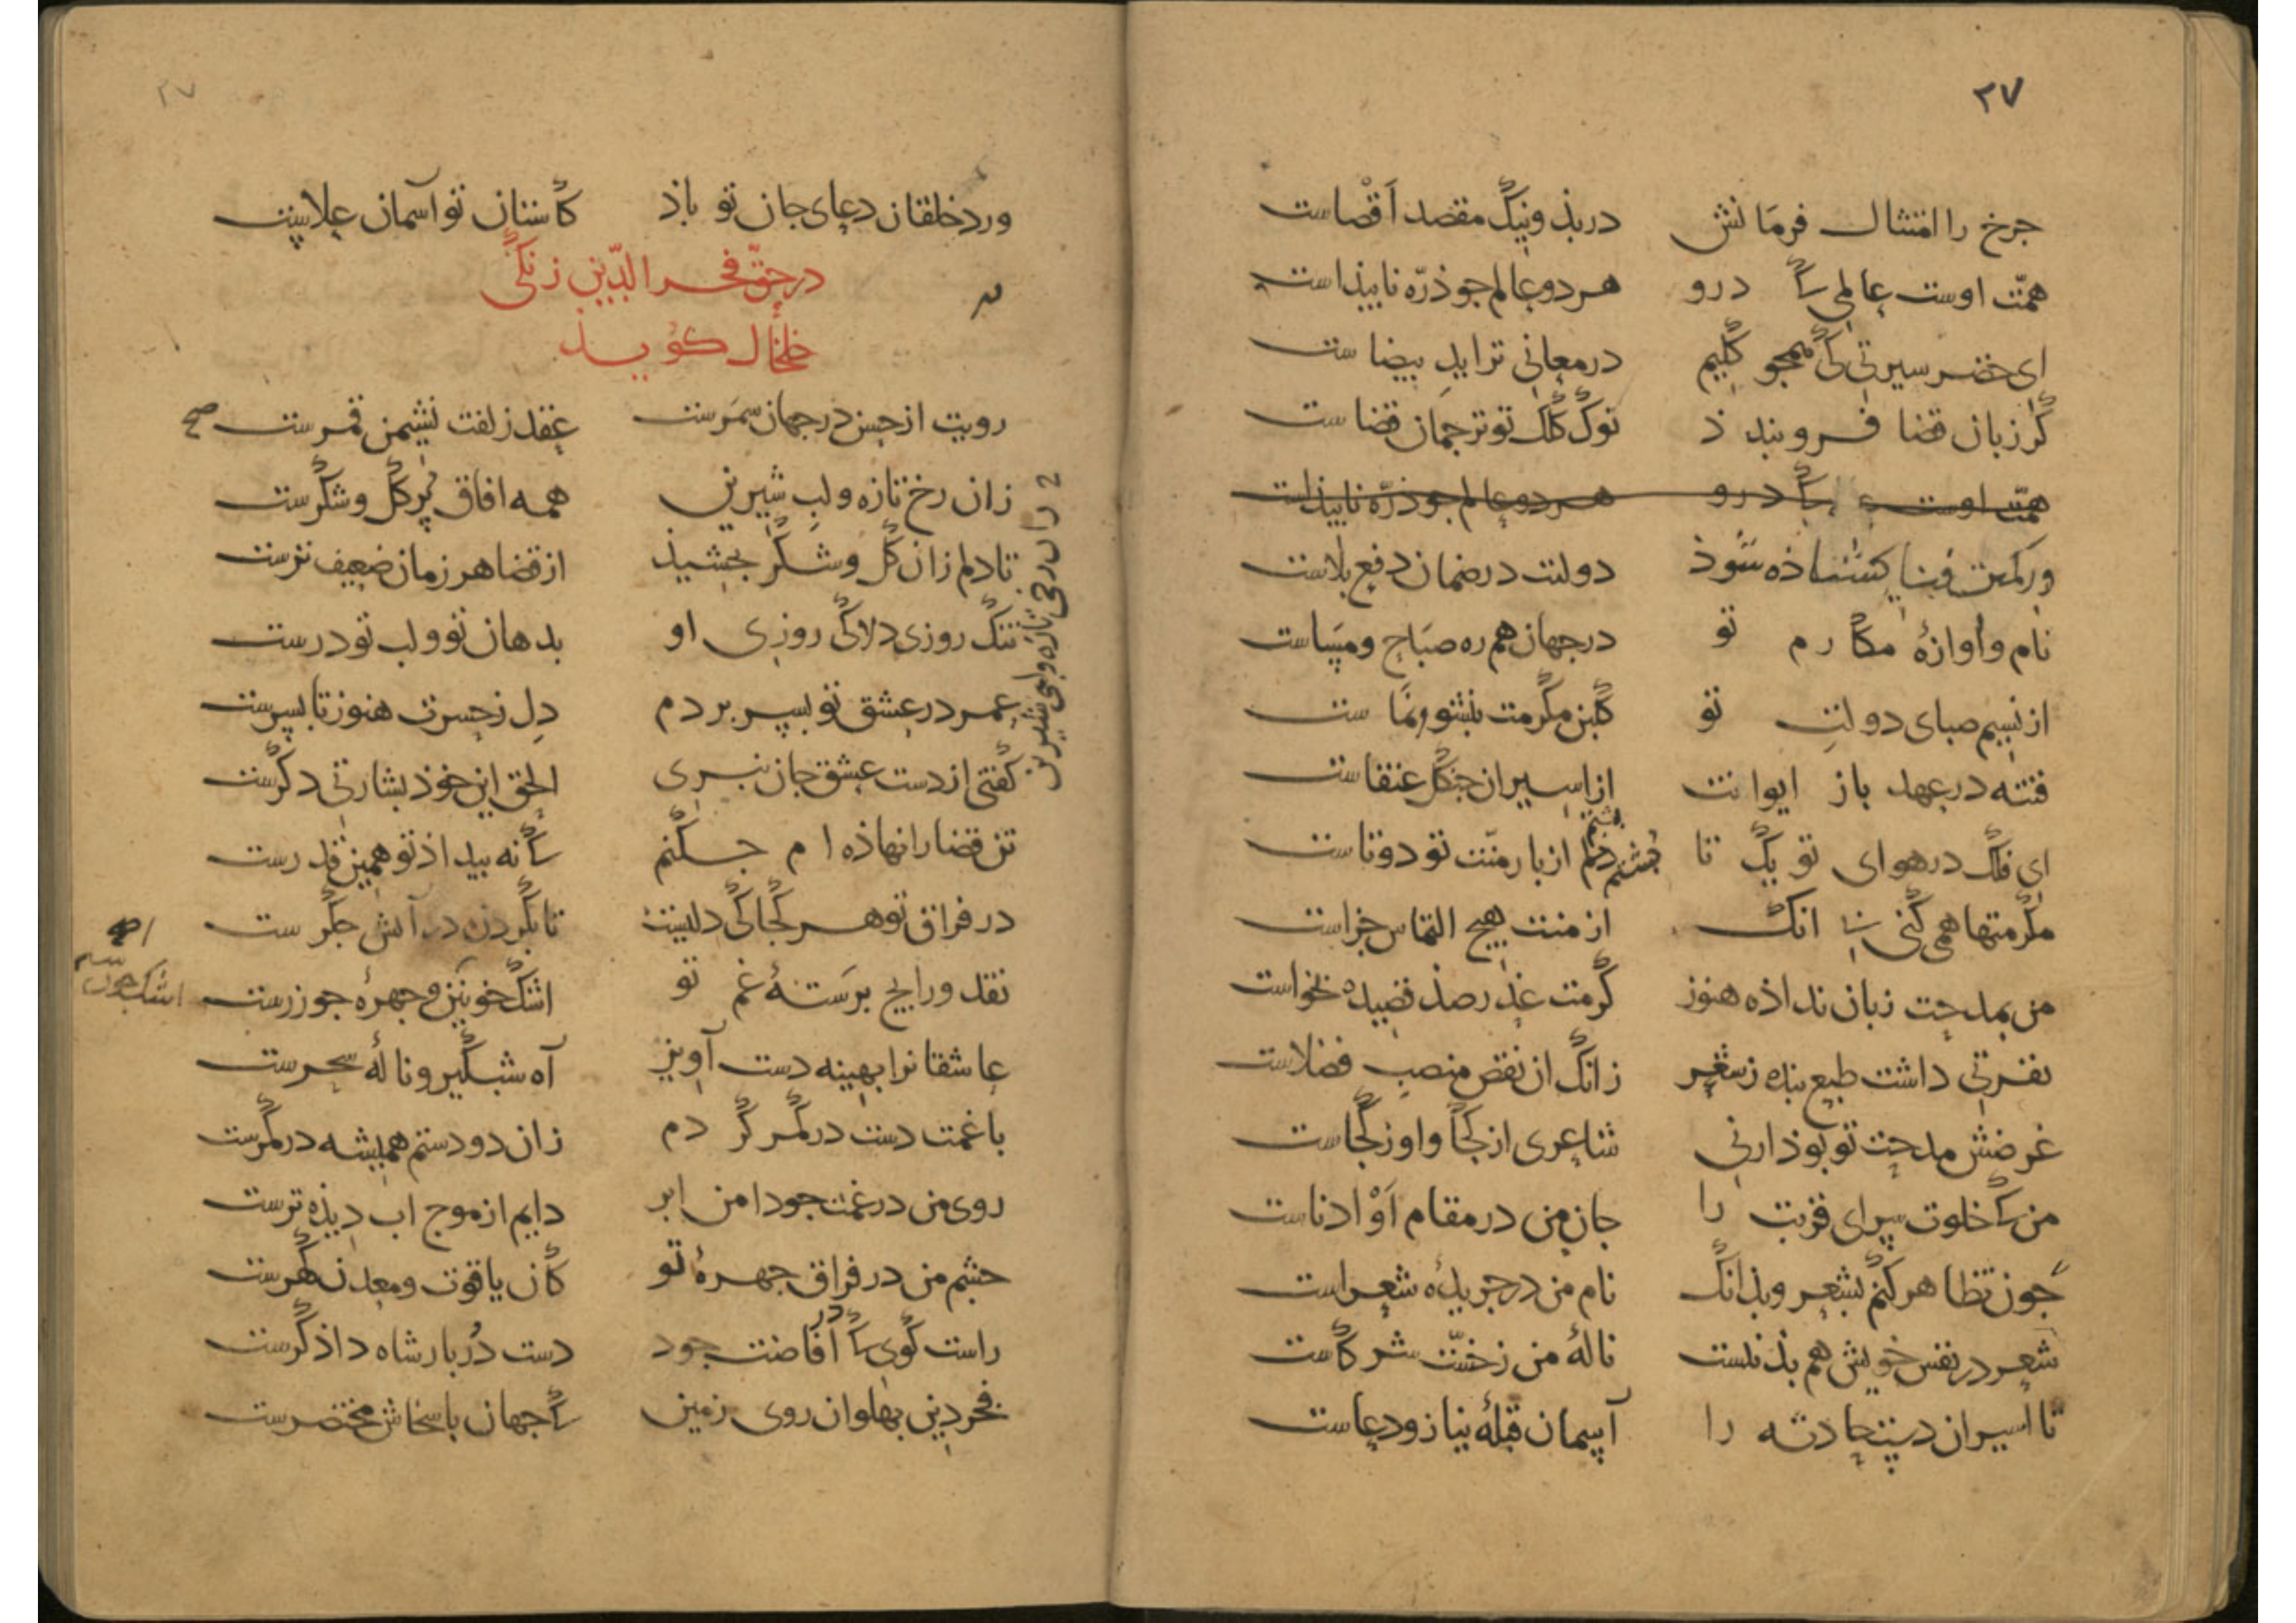 ۲۷
جرخ را امتثال فرمانش در بذ و نیک مقصد اَقْصاست
همّت اوست عالمی کی درو هر دو عالم جو ذرّه ناپیذاست
ای خضر سیرتی کی همجو کلیم در معانی ترا ید بیضاست
گر زبان قضا فرو بندذ نوک کلک تو ترجمان قضاست
همّت اوست کی درو هر دو عالم جو ذرّه ناپیذاست
ور کمین فنا کشاذه شوذ دولتت در ضمان دفع بلاست
نام و اوازۀ مکارم تو در جهان هم ره صباح و مساست
از نسیم صبای دولت تو گلبن مکرمت بنشو و نماست
فتنه در عهد باز ایوانت از اسیران جنگل عنقاست
ای فلک در هوای تو یک تا بشتم از بار منّت تو دوتاست
مکرمتها همی کنی بی انک از منت هیچ التماس جزاست
من بمدحت زبان نداذه هنوز کرمت عذر صذ قصیده بخواست
نفرتی داشت طبع بنده ز شعر زانک ان نقص منصب فضلاست
غرضش مدحت تو بوذ ارنی شاعری از کجا و او ز کجاست
من کی خلوت سرای قربت را جان من در مقام اَوْ ادناست
جون تظاهر کنم بشعر و بذانک نام من در جریدۀ شعراست
شعر در نفس خویش هم بذ نیست نالۀ من ز خسّت شرکاست
تا اسیران دست حادثه را آسمان قبلۀ نیاز و دعاست
۲۷
ورد خلقان دعای جان تو باذ کاستان تو آسمان علاست
در حقّ فخر الدّین زنکی
خلخال کوید
رویت از حسن در جهان سَمَرست عقد زلفت نشیمن قمرست صح
زان رخ تازه و لب شیرین همه افاق پر گل و شکرست
زان رخ تازه و لب شیرین
تا دلم زان گل و شکر بجشیذ از قضا هر زمان ضعیف ترست
تنگ روزی دلا کی روزی او بدهان تو و لب تو درست
عمر در عشق تو بسر بردم دل ز حسرت هنوز تا بسرست
گفتی از دست عشق جان نبری الحق این خوذ بشارتی دکرست
تن قضا را نهاذه ام جکنم کی نه بیداذ تو همین قدرست
در فراق تو هر کجا کی دلیست تا بکردن در آتش جکرست
نقد و رایج بر سَتۀ غم تو اشک خونین و جهرۀ جو زرست
عاشقانرا بهینه دست آویز آه شبگیر و نالۀ سحرست
با غمت دست در کمر کردم زان دو دستم همیشه در کمرست
روی من در غمت جو دامن ابر دایم از موج اب دیذه ترست
جشم من در فراق جهرۀ تو کان یاقوت و معدن گهرست
راست گوی کی در افاضت جود دست دُربار شاه داذگرست
فخر دین بهلوان روی زمین کی جهان با سخاش مختصرست